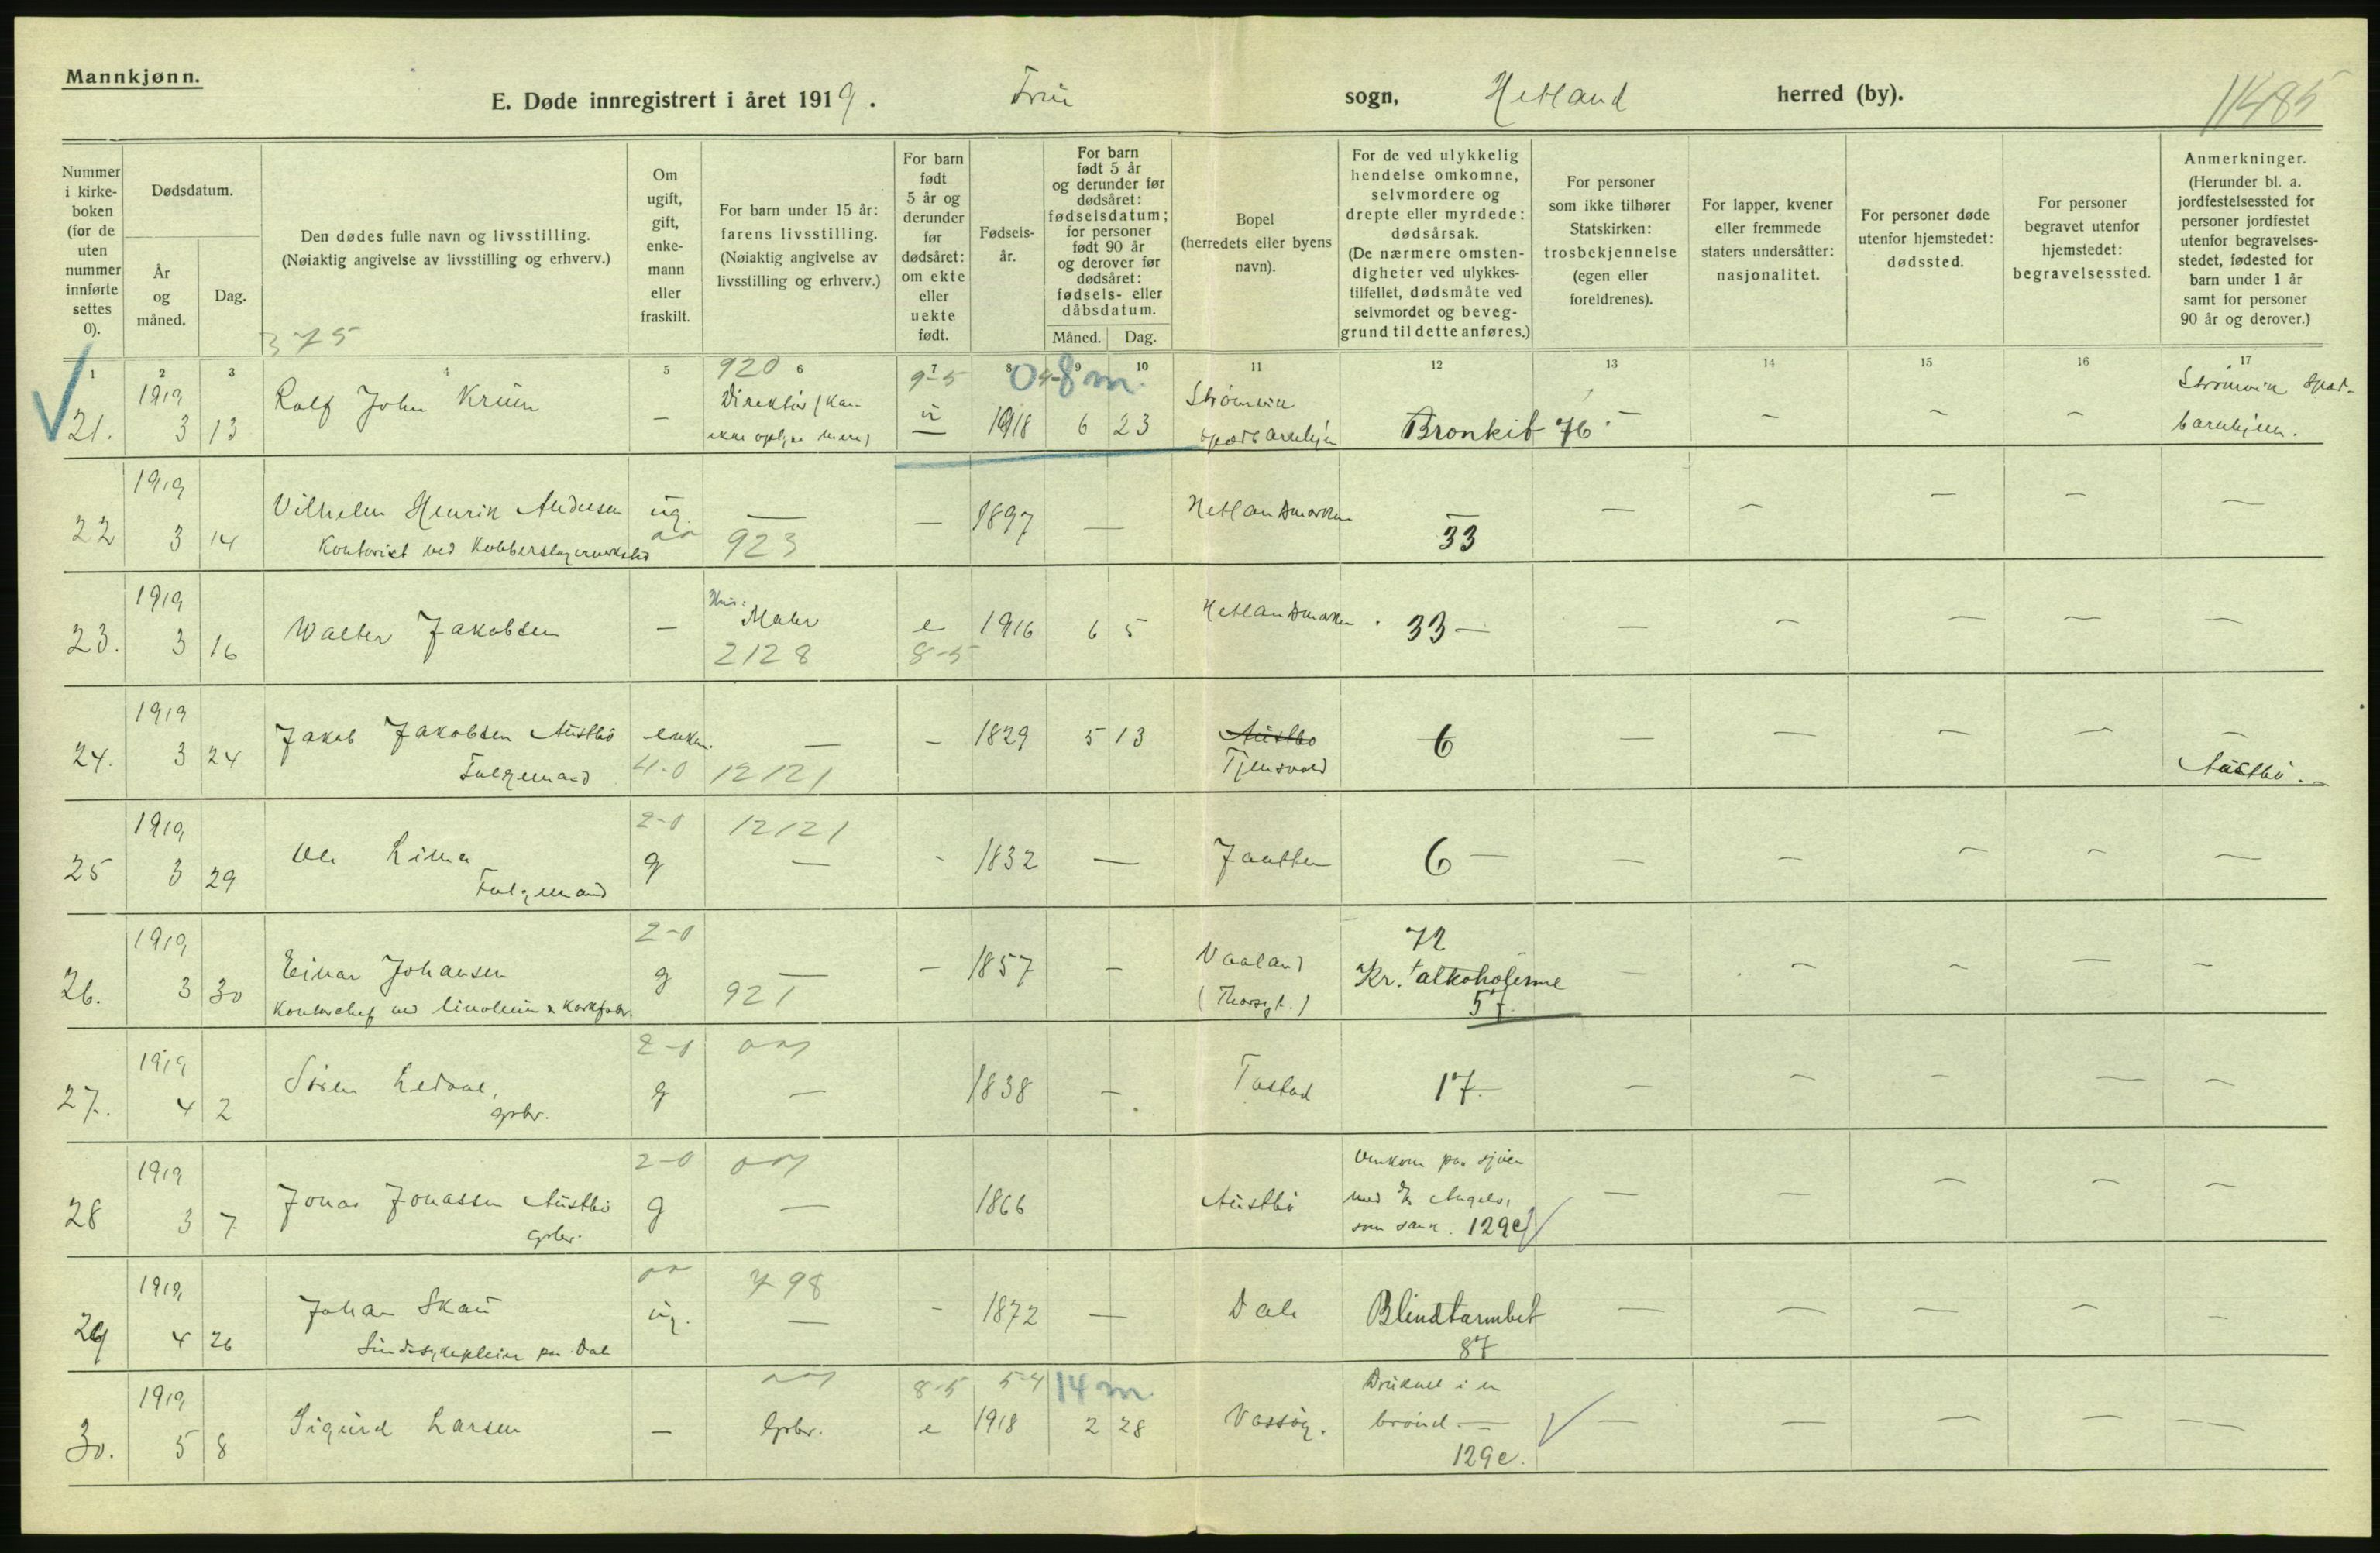 Mannkjønn.
E. Døde innregistrert i året 1919. Frue sogn, Hetland herred (by).
11485
Nummer i kirke-boken (for de uten nummer innførte settes 0).
Dødsdatum.
År og måned.
Dag.
Den dødes fulle navn og livsstilling.
(Nøiaktig angivelse av livsstilling og erhverv.)
375
Om ugift, gift, enke-mann eller fraskilt.
For barn under 15 år: farens livsstilling.
(Nøiaktig angivelse av livsstilling og erhverv.)
For barn født 5 år og derunder før dødsåret: om ekte eller uekte født.
Fødsels-år.
For barn født 5 år og derunder før dødsåret: fødselsdatum; for personer født 90 år og derover før dødsåret: fødsels- eller dåbsdatum.
Måned. Dag.
Bopel
(herredets eller byens navn).
For de ved ulykkelig hendelse omkomne, selvmordere og drepte eller myrdede: dødsårsak.
(De nærmere omsten-digheter ved ulykkes-tilfellet, dødsmåte ved selvmordet og beveg-grund til dette anføres.)
For personer som ikke tilhører Statskirken: trosbekjennelse (egen eller foreldrenes).
For lapper, kvener eller fremmede staters undersåtter: nasjonalitet.
For personer døde utenfor hjemstedet: dødssted.
For personer begravet utenfor hjemstedet: begravelsessted.
Anmerkninger.
(Herunder bl. a. jordfestelsessted for personer jordfestet utenfor begravelses-stedet, fødested for barn under 1 år samt for personer 90 år og derover.)
1 2 3 4 5 6 7 8 9 10 11 12 13 14 15 16 17
920 9-5 04-8 m.
21. 1919 3 13 Rolf John — Direktør (kan ikke oplyse mere) u 1918 6 23 Strømvik spædbarnhjem Bronkit 76 — — — — Strømvik spæd-barnhjem.
22 1919 3 14 Vilhelm Henrik Andersen ug. — — 1897 — Hetlandsmarken — — — — — —
Kontorist ved Kobberslagerverksted 923 33
23. 1919 3 16 Walter Jakobsen — Maler e 1916 6 5 Hetlandsmarken 33 — — — — — —
2128 8-5
24. 1919 3 24 Jakob Jakobsen Austbø enkem. — — 1829 5 13 Austbø 6 — — — — —
Folgemand 4-0 12121 Tjensvold Austbø.
25 1919 3 29 Ole Lima g — - 1832 — Jaatten 6 — — — — — —
Folgemand 2-0 12121
26. 1919 3 30 Einar Johansen g — — 1857 — Vaaland 72 — — — — —
Kontorchef ved linoleum & korkfabr. 2-0 921 Kr. alkoholisme 57.
27. 1919 4 2 Søren Ledaal, g — 1838 — Tastad 17. — — — — —
grbr. 2-0
28 1919 3 7 Jonas Jonassen Austbø g — 1866 Austbø Omkom paa sjøen — — — — —
grbr. 2-0 med som sank. 129c)
29 1919 4 26 Johan Skau ug. — - 1872 — Dale Blindtarmbet — — — — —
Sindssykepleier paa Dale 798 87
30. 1919 5 8 Sigurd Larsen — Grbr. e 1918 2 28 Vassøy. Druknet i en brønd — — — — — —
8-5 5-4 14 m 129c.